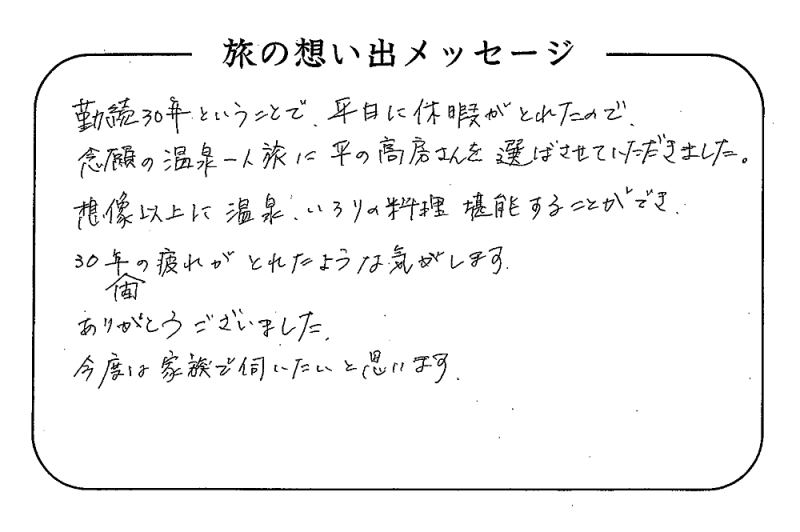 旅の想い出メッセージ
勤続30年ということで、平日に休暇がとれたので、
念願の温泉一人旅に平の高房さんを選ばさせていただきました。
想像以上に温泉、いろりの料理堪能することができ、
30年間の疲れがとれたような気がします。
ありがとうございました。
今度は家族で伺いたいと思います。